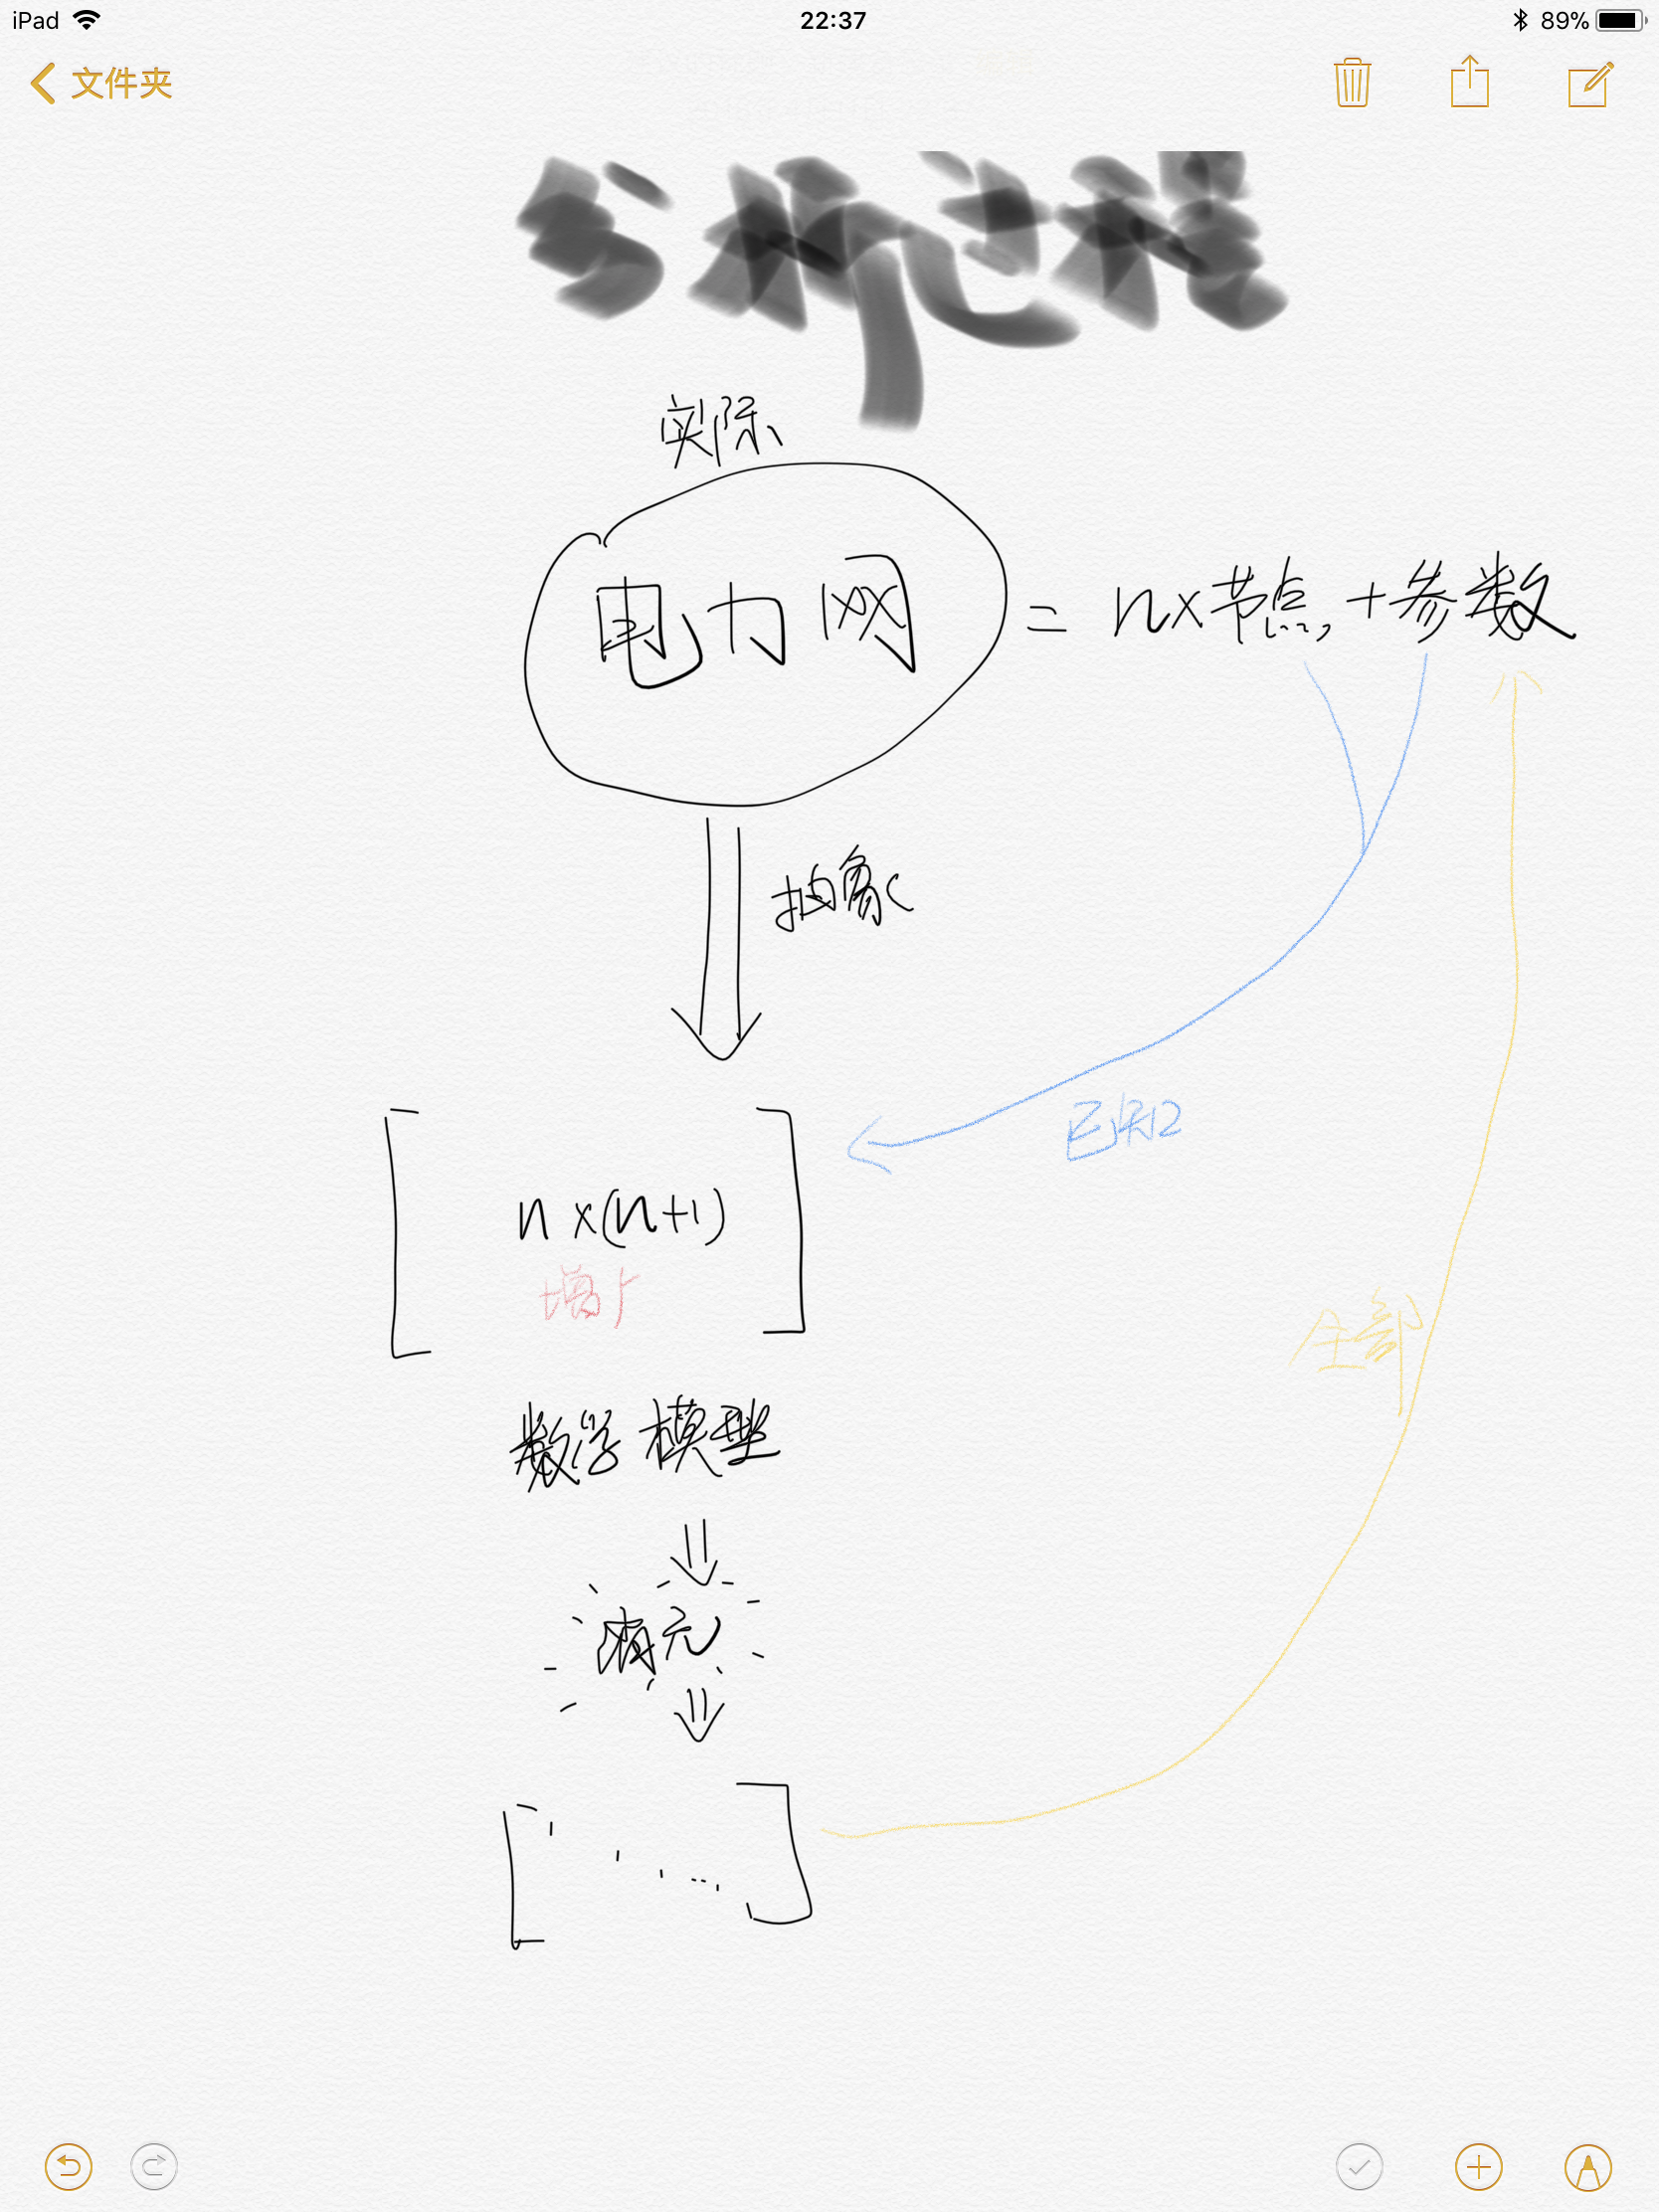 iPad 22:37 89%
文件夹
分析过程
实际
电力网 = n×节点,+参数
抽象
已知
n×(n+1)
增广
全部
数学模型
消元